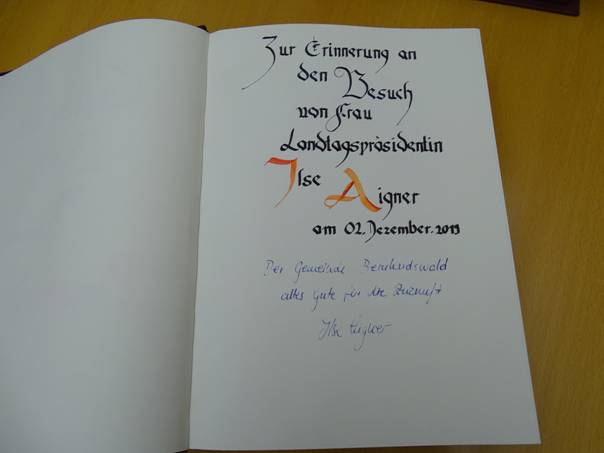 Zur Erinnerung an
den Besuch
von Frau
Landtagspräsidentin
Ilse Aigner
am 02. Dezember. 2019
Der Gemeinde Bernhardswald
alles Gute für die Zukunft
Ilse Aigner